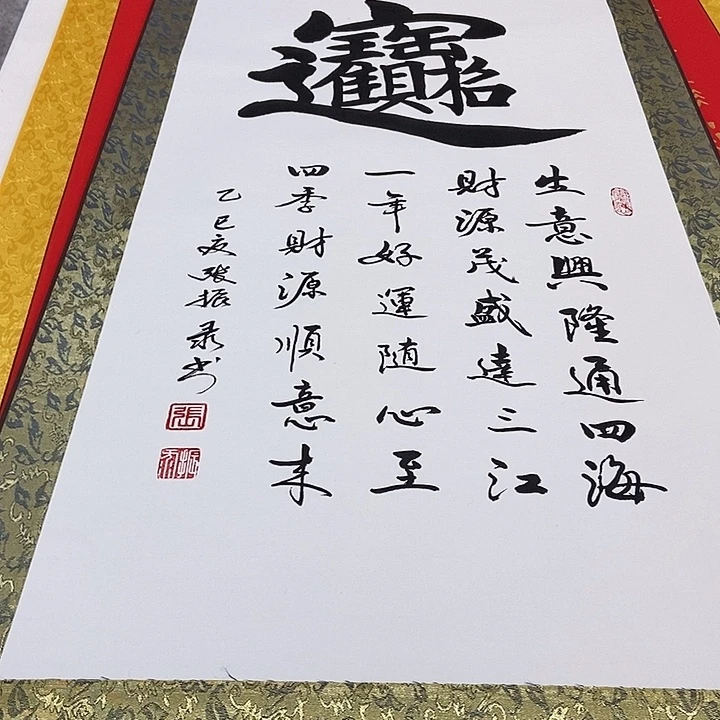 招財進寶
生意興隆通四海
財源茂盛達三江
一年好運随心至
四季財源順意来
乙巳夏張振书
張